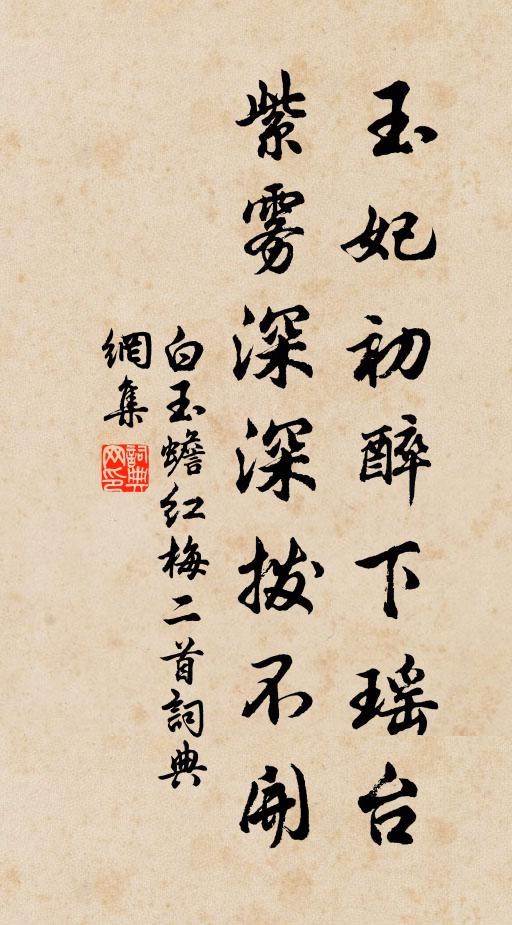 玉妃初醉下瑶台
紫雾深深拨不開
白玉蟾红梅二首詞典
網集
詞典网印